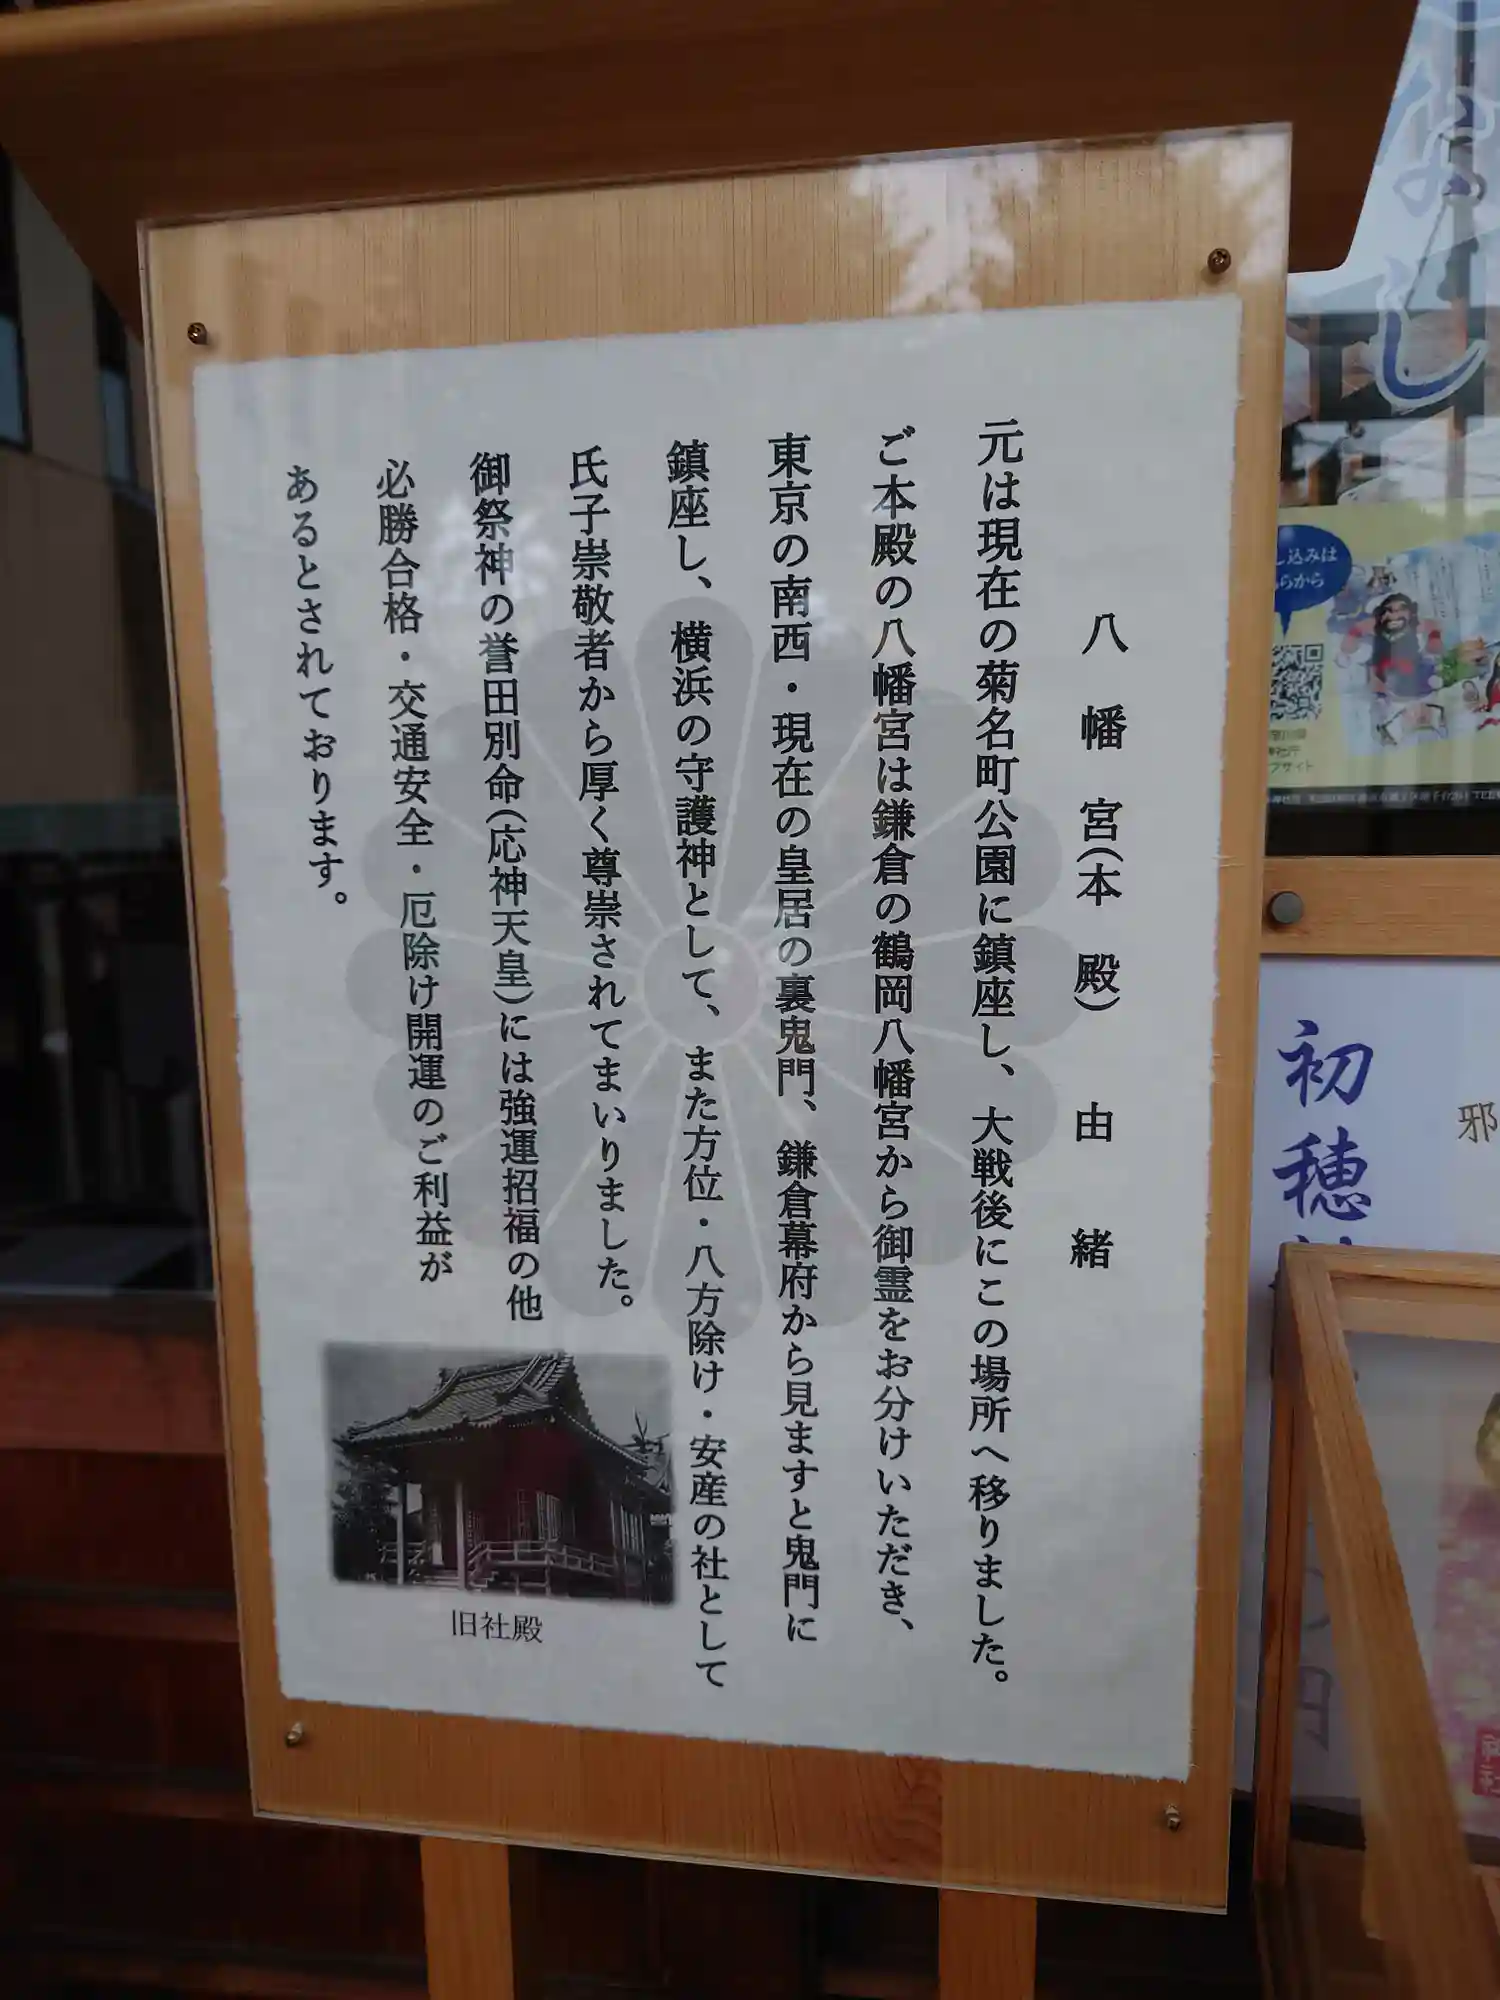 八幡宮(本殿)由緒
元は現在の菊名町公園に鎮座し、大戦後にこの場所へ移りました。
ご本殿の八幡宮は鎌倉の鶴岡八幡宮から御霊をお分けいただき、
東京の南西・現在の皇居の裏鬼門、鎌倉幕府から見ますと鬼門に
鎮座し、横浜の守護神として、また方位・八方除け・安産の社として
氏子崇敬者から厚く尊崇されてまいりました。
御祭神の誉田別命(応神天皇)には強運招福の他
必勝合格・交通安全・厄除け開運のご利益が
あるとされております。
旧社殿
なし
し込みは
らから
初穂
邪
円